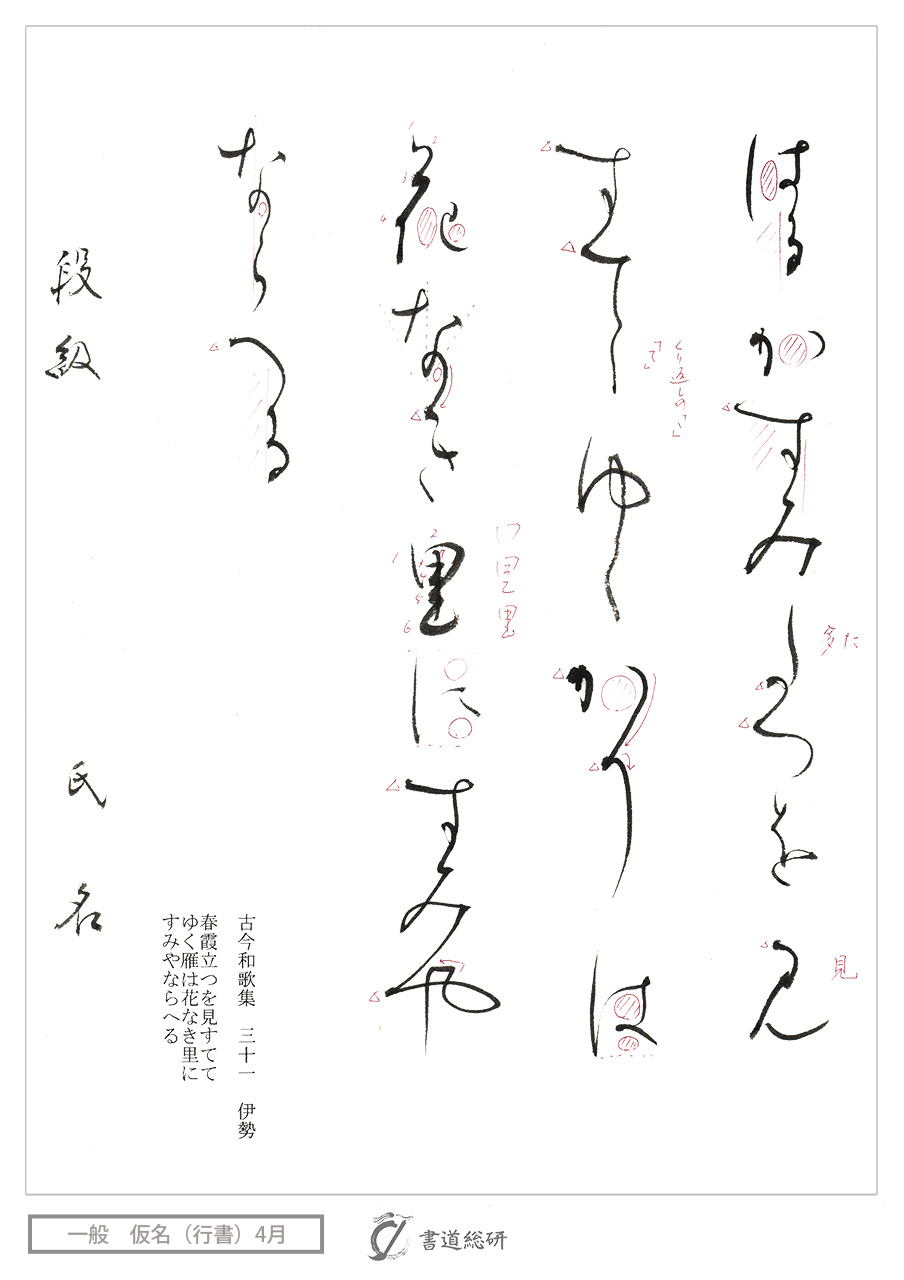 はるかすみ多つを見
すてゝゆくかりは
花なき里にすみや
ならへる
段級 氏名
多 た
見
くり返しの「ゝ」
「て」
古今和歌集 三十一 伊勢
春霞立つを見すてて
ゆく雁は花なき里に
すみやならへる
一般 仮名（行書）4月
書道総研